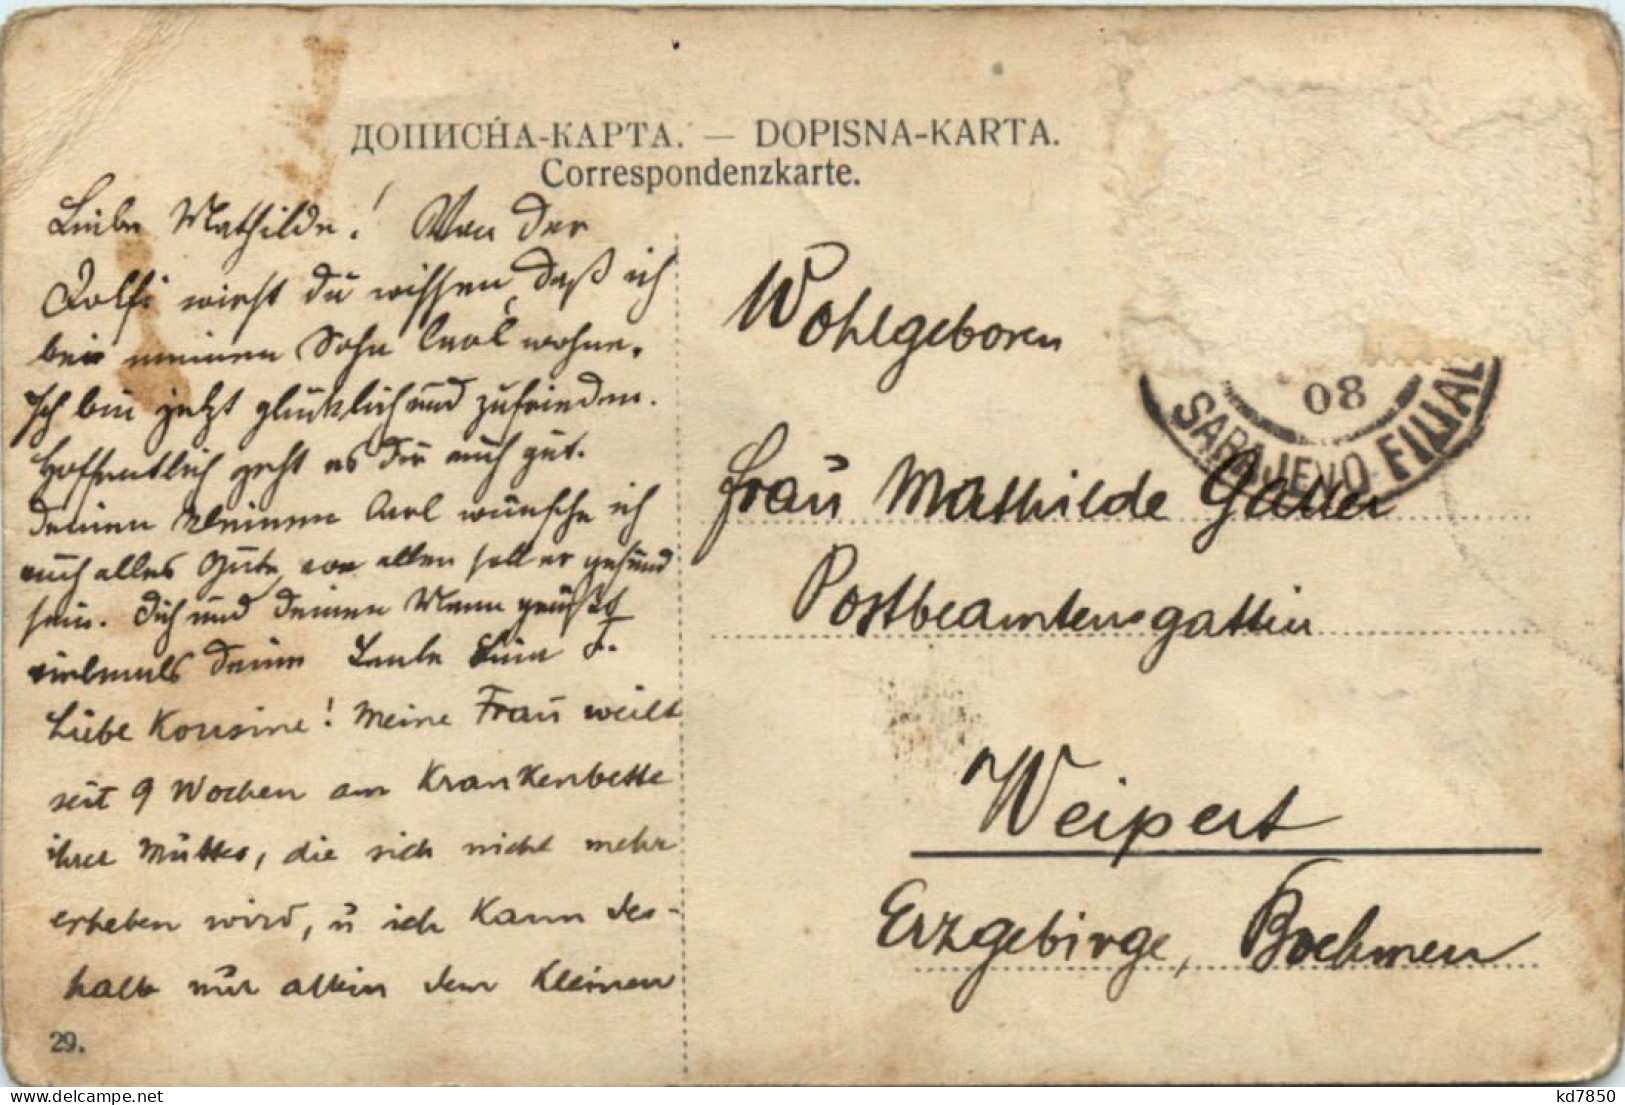 ДОПИСНА-КАРТА. — DOPISNA-KARTA.
Correspondenzkarte.
Liebe Mathilde! Von der
wirst du wissen, daß ich
bei meinem Sohn Carl wohne.
Ich bin jetzt glücklich und zufrieden.
Hoffentlich geht es dir auch gut.
Deinen kleinen Carl wünsche ich
auch alles Gute, vor allen soll er gesund
sein. Dich und deinen Mann grüßt
vielmals deine Tante
Liebe Kousine! Meine Frau weilt
seit 9 Wochen am Krankenbette
ihrer Mutter, die sich nicht mehr
erheben wird, u ich kann des-
halb nur allein dem kleinen
29.
08
SARAJEVO FILIJAL
Wohlgeboren
Frau Mathilde Gatter
Postbeamtensgattin
Weipert
Erzgebirge, Boehmen
www.delcampe.net
kd7850